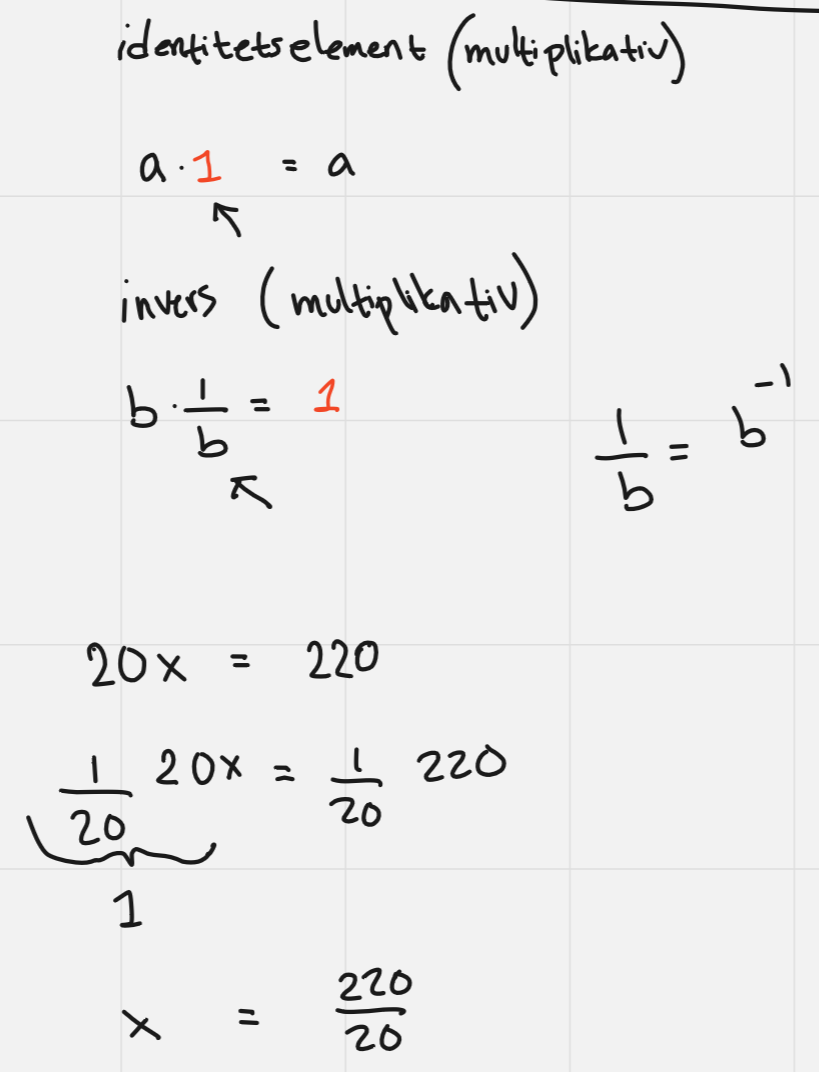 identitetselement (multiplikativ)
a · 1 = a
invers (multiplikativ)
b · 1/b = 1
1/b = b⁻¹
20x = 220
1/20 20x = 1/20 220
1
x = 220/20